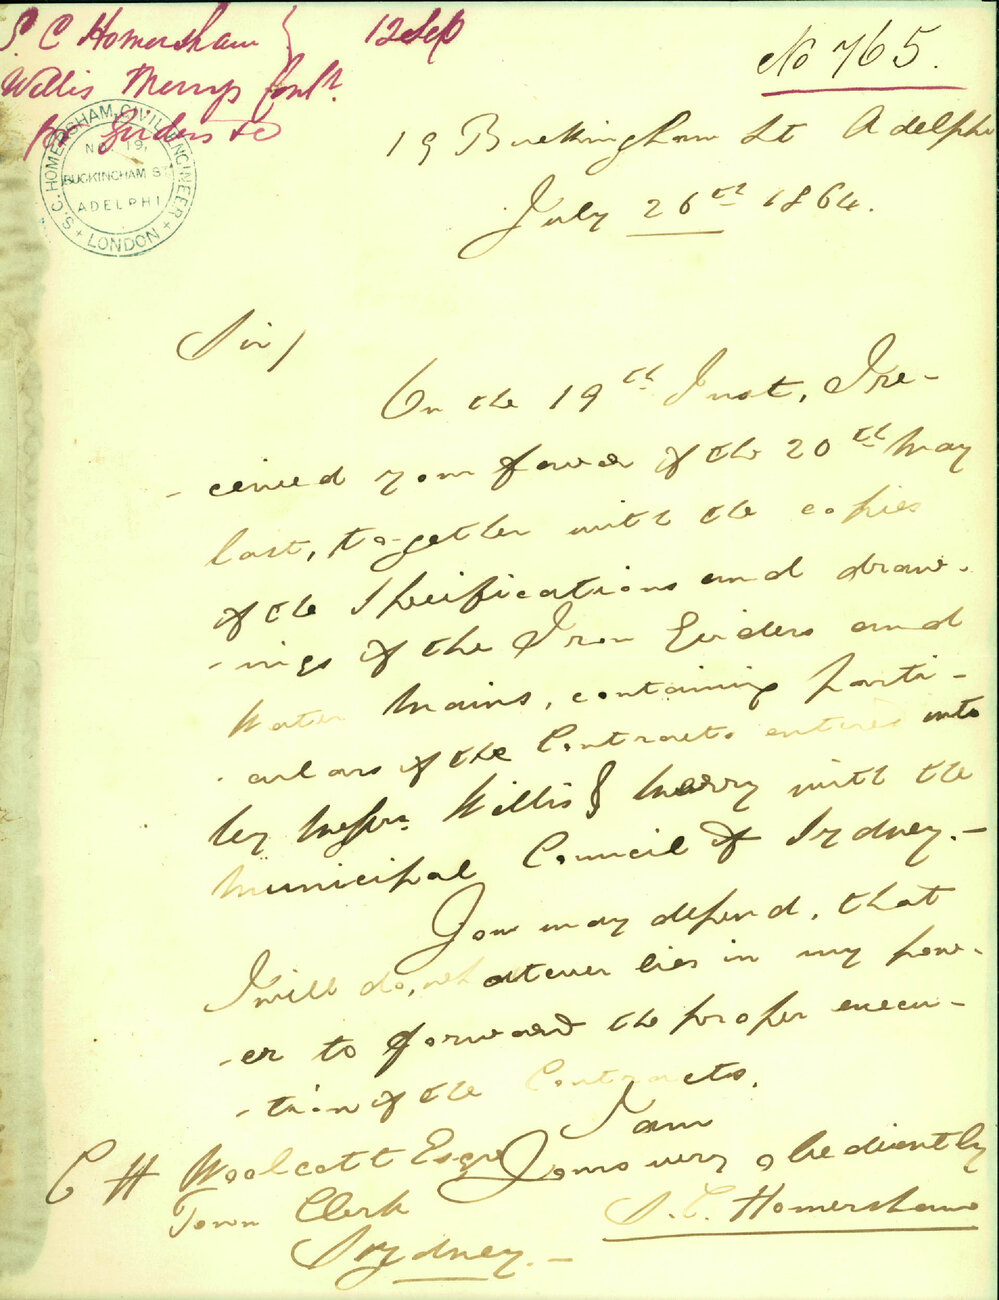 S. C Homersham } 12 Sep
Willis Merry & Contr.
for Girders &c
No 765.
S. C. HOMERSHAM, CIVIL ENGINEER + LONDON +
No. 19,
BUCKINGHAM ST
ADELPHI
19 Buckingham St Adelphi
July 26th 1864.
Sir/
On the 19th Inst, I re-
- ceived your favor of the 20th May
last, together with the copies
of the Specifications and draw-
- ings of the Iron Girders and
Water Mains, containing parti-
- culars of the Contracts entered into
by Messrs. Willis & Merry with the
Municipal Council of Sydney. -
You may depend, that
I will do, whatever lies in my pow-
- er to forward the proper execu-
- tion of the Contracts.
I am
Yours very obediently
S. C. Homersham
C H Woolcott Esqre
Town Clerk
Sydney. -